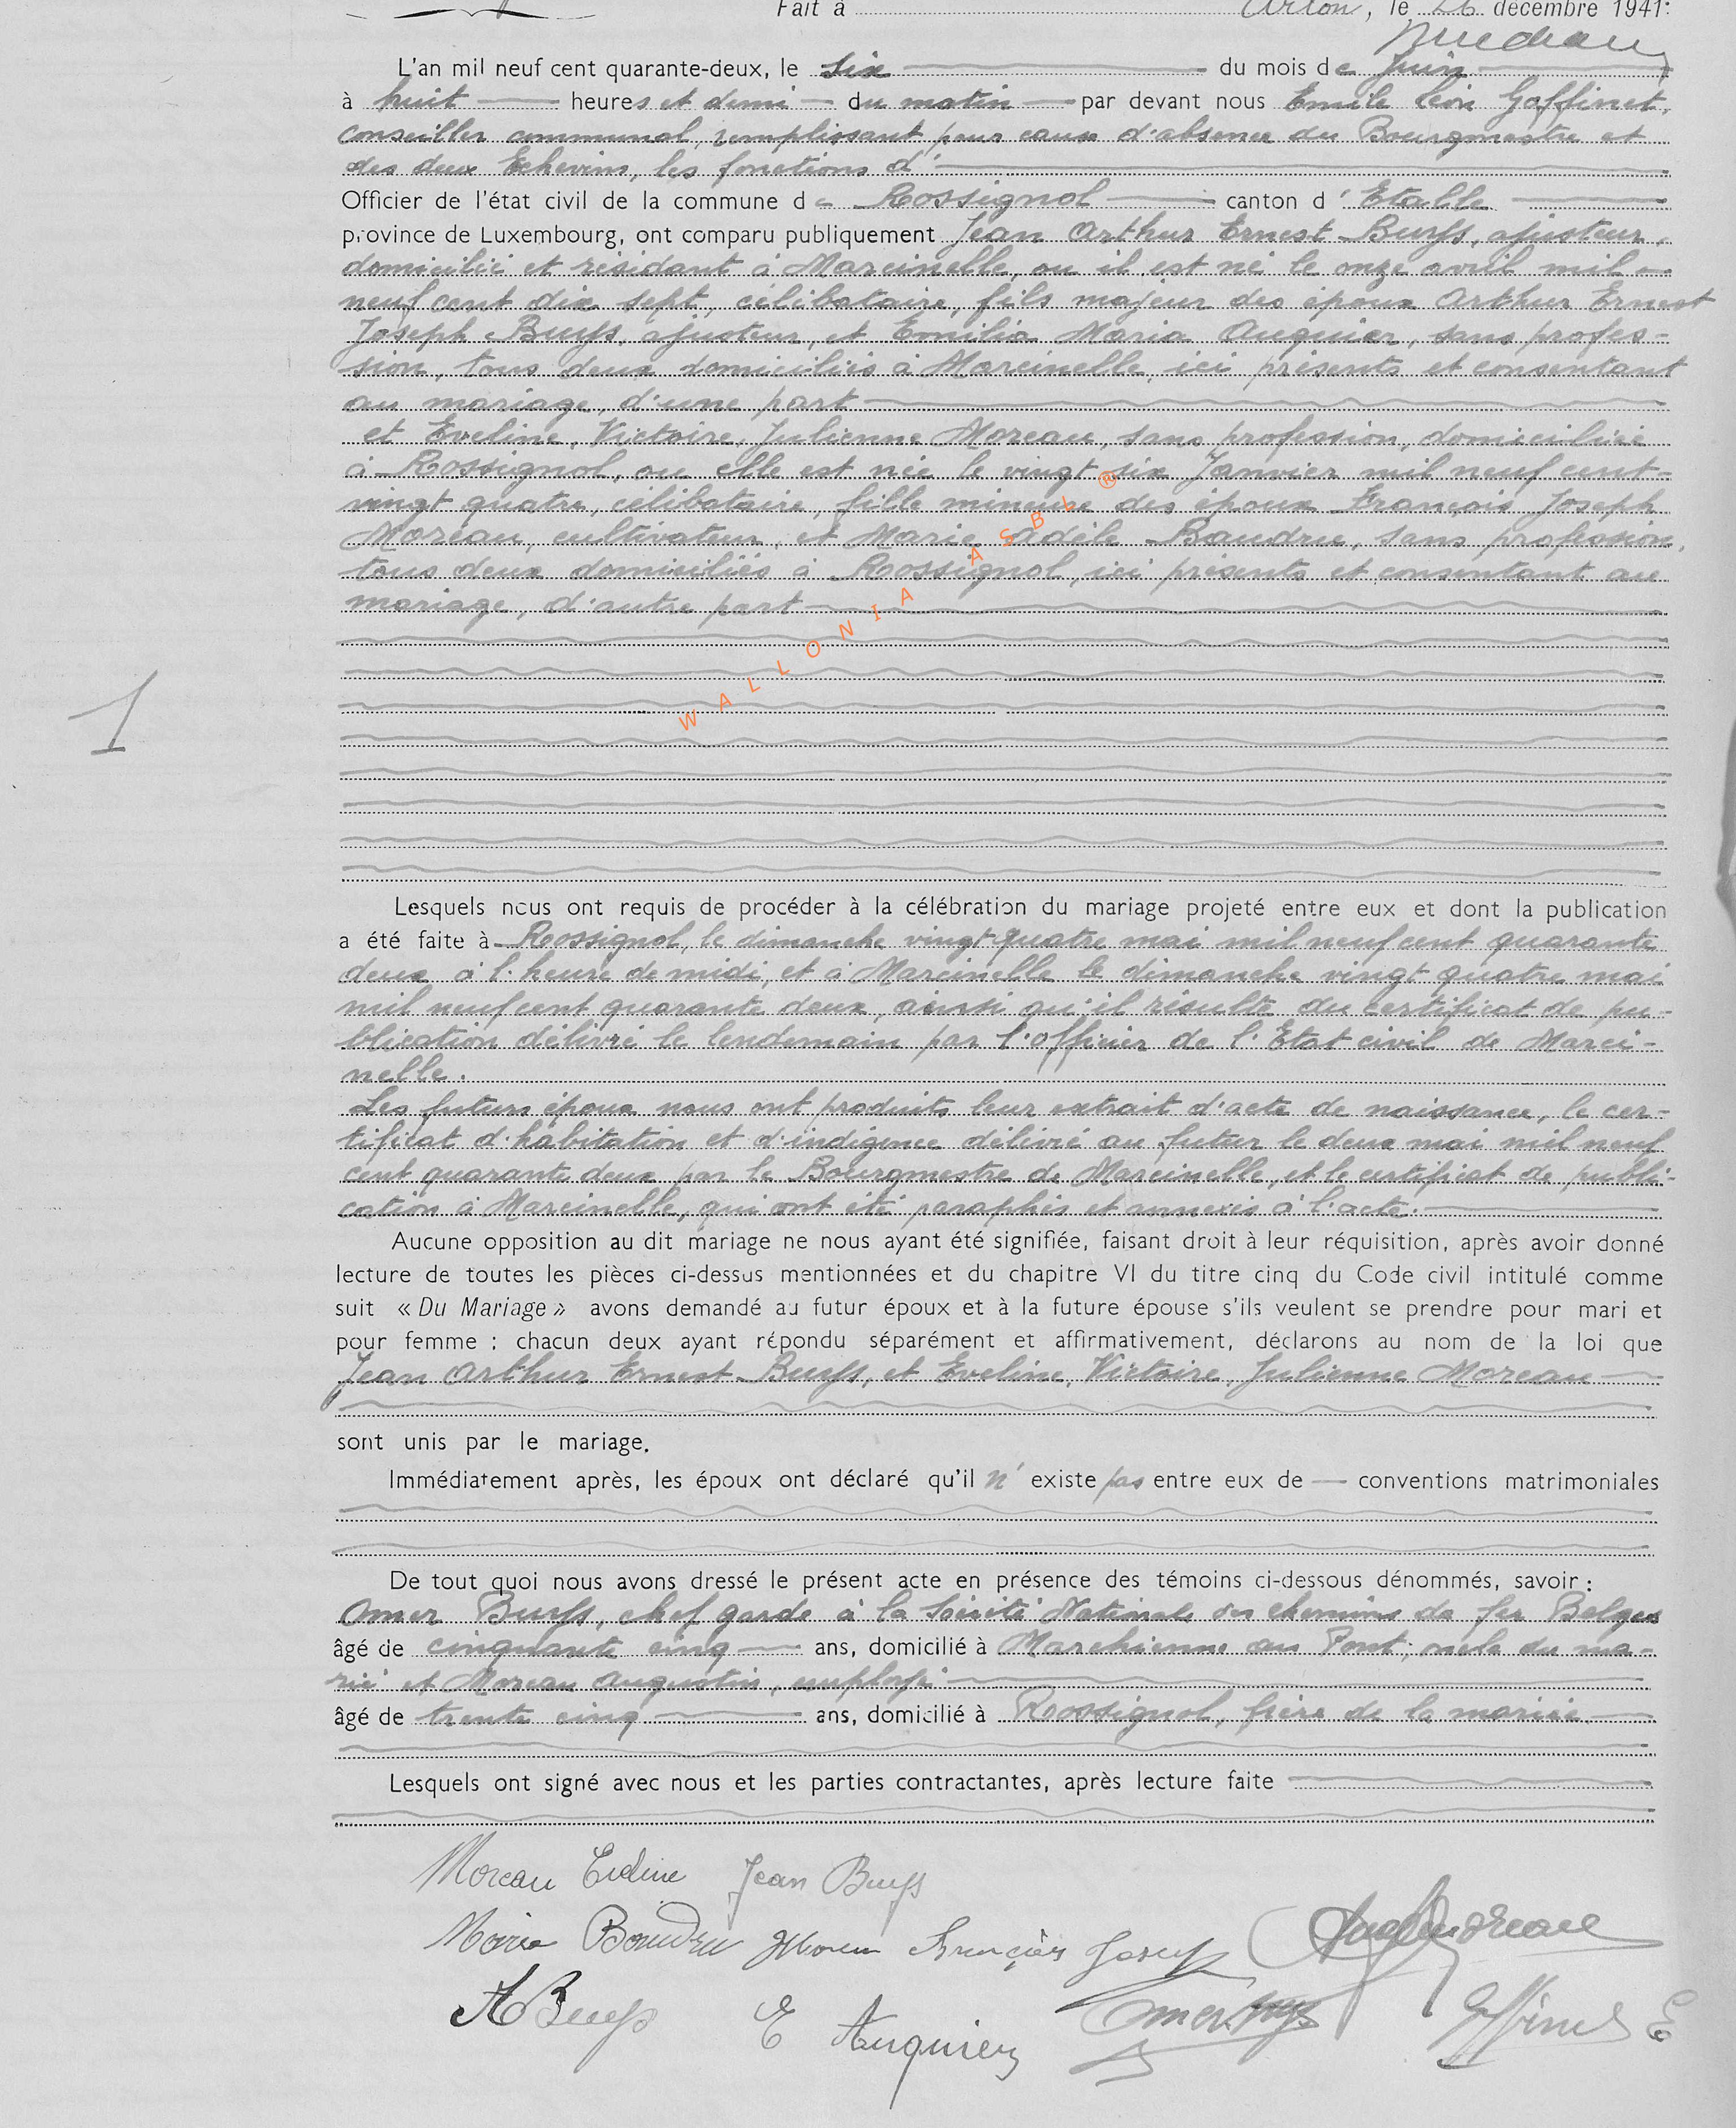 Fait à Arlon, le 26 décembre 1941.
L'an mil neuf cent quarante-deux, le six du mois de Juin
à huit heures et demi du matin par devant nous Emile Léon Goffinet,
conseiller communal, remplissant pour cause d'absence du Bourgmestre et
des deux Echevins, les fonctions d'
Officier de l'état civil de la commune de Rossignol canton d'Etalle
province de Luxembourg, ont comparu publiquement Jean Arthur Ernest Buys, ajusteur,
domicilié et résidant à Marcinelle, ou il est né le onze avril mil
neuf cent dix sept, célibataire, fils majeur des époux Arthur Ernest
Joseph Buys, ajusteur, et Emilia Maria Auquier, sans profes-
sion, tous deux domiciliés à Marcinelle, ici présents et consentant
au mariage, d'une part
et Eveline, Victoire, Julienne Moreau, sans profession, domiciliée
à Rossignol, ou elle est née le vingt six Janvier mil neuf cent-
vingt quatre, célibataire, fille mineure des époux François Joseph
Moreau, cultivateur, et Marie Adèle Baudru, sans profession,
tous deux domiciliés à Rossignol, ici présents et consentant au
mariage, d'autre part
WALLONIA ASBL ®
1
Lesquels nous ont requis de procéder à la célébration du mariage projeté entre eux et dont la publication
a été faite à Rossignol, le dimanche vingt quatre mai mil neuf cent quarante
deux à l'heure de midi, et à Marcinelle le dimanche vingt quatre mai
mil neuf cent quarante deux, ainsi qu'il résulte du certificat de pu-
blication délivré le lendemain par l'officier de l'Etat civil de Marci-
nelle.
Les futurs époux nous ont produits leur extrait d'acte de naissance, le cer-
tificat d'habitation et d'indigence délivré au futur le deux mai mil neuf
cent quarante deux par le Bourgmestre de Marcinelle, et le certificat de publi-
cation à Marcinelle, qui ont été paraphés et annexés à l'acte.
Aucune opposition au dit mariage ne nous ayant été signifiée, faisant droit à leur réquisition, après avoir donné
lecture de toutes les pièces ci-dessus mentionnées et du chapitre VI du titre cinq du Code civil intitulé comme
suit « Du Mariage » avons demandé au futur époux et à la future épouse s'ils veulent se prendre pour mari et
pour femme ; chacun deux ayant répondu séparément et affirmativement, déclarons au nom de la loi que
Jean Arthur Ernest Buys, et Eveline, Victoire, Julienne Moreau
sont unis par le mariage.
Immédiatement après, les époux ont déclaré qu'il n'existe pas entre eux de conventions matrimoniales
De tout quoi nous avons dressé le présent acte en présence des témoins ci-dessous dénommés, savoir :
Omer Buys, chef garde à la Société Nationale des chemins de fer Belges
âgé de cinquante cinq ans, domicilié à Marchienne au Pont, oncle du ma-
rié et Moreau Augustin, employé
âgé de trente cinq ans, domicilié à Rossignol, frère de la mariée
Lesquels ont signé avec nous et les parties contractantes, après lecture faite
Moreau Eveline Jean Buys
Marie Baudru Moreau François Joseph
A Buys E Auquier Omer Buys Goffinet E